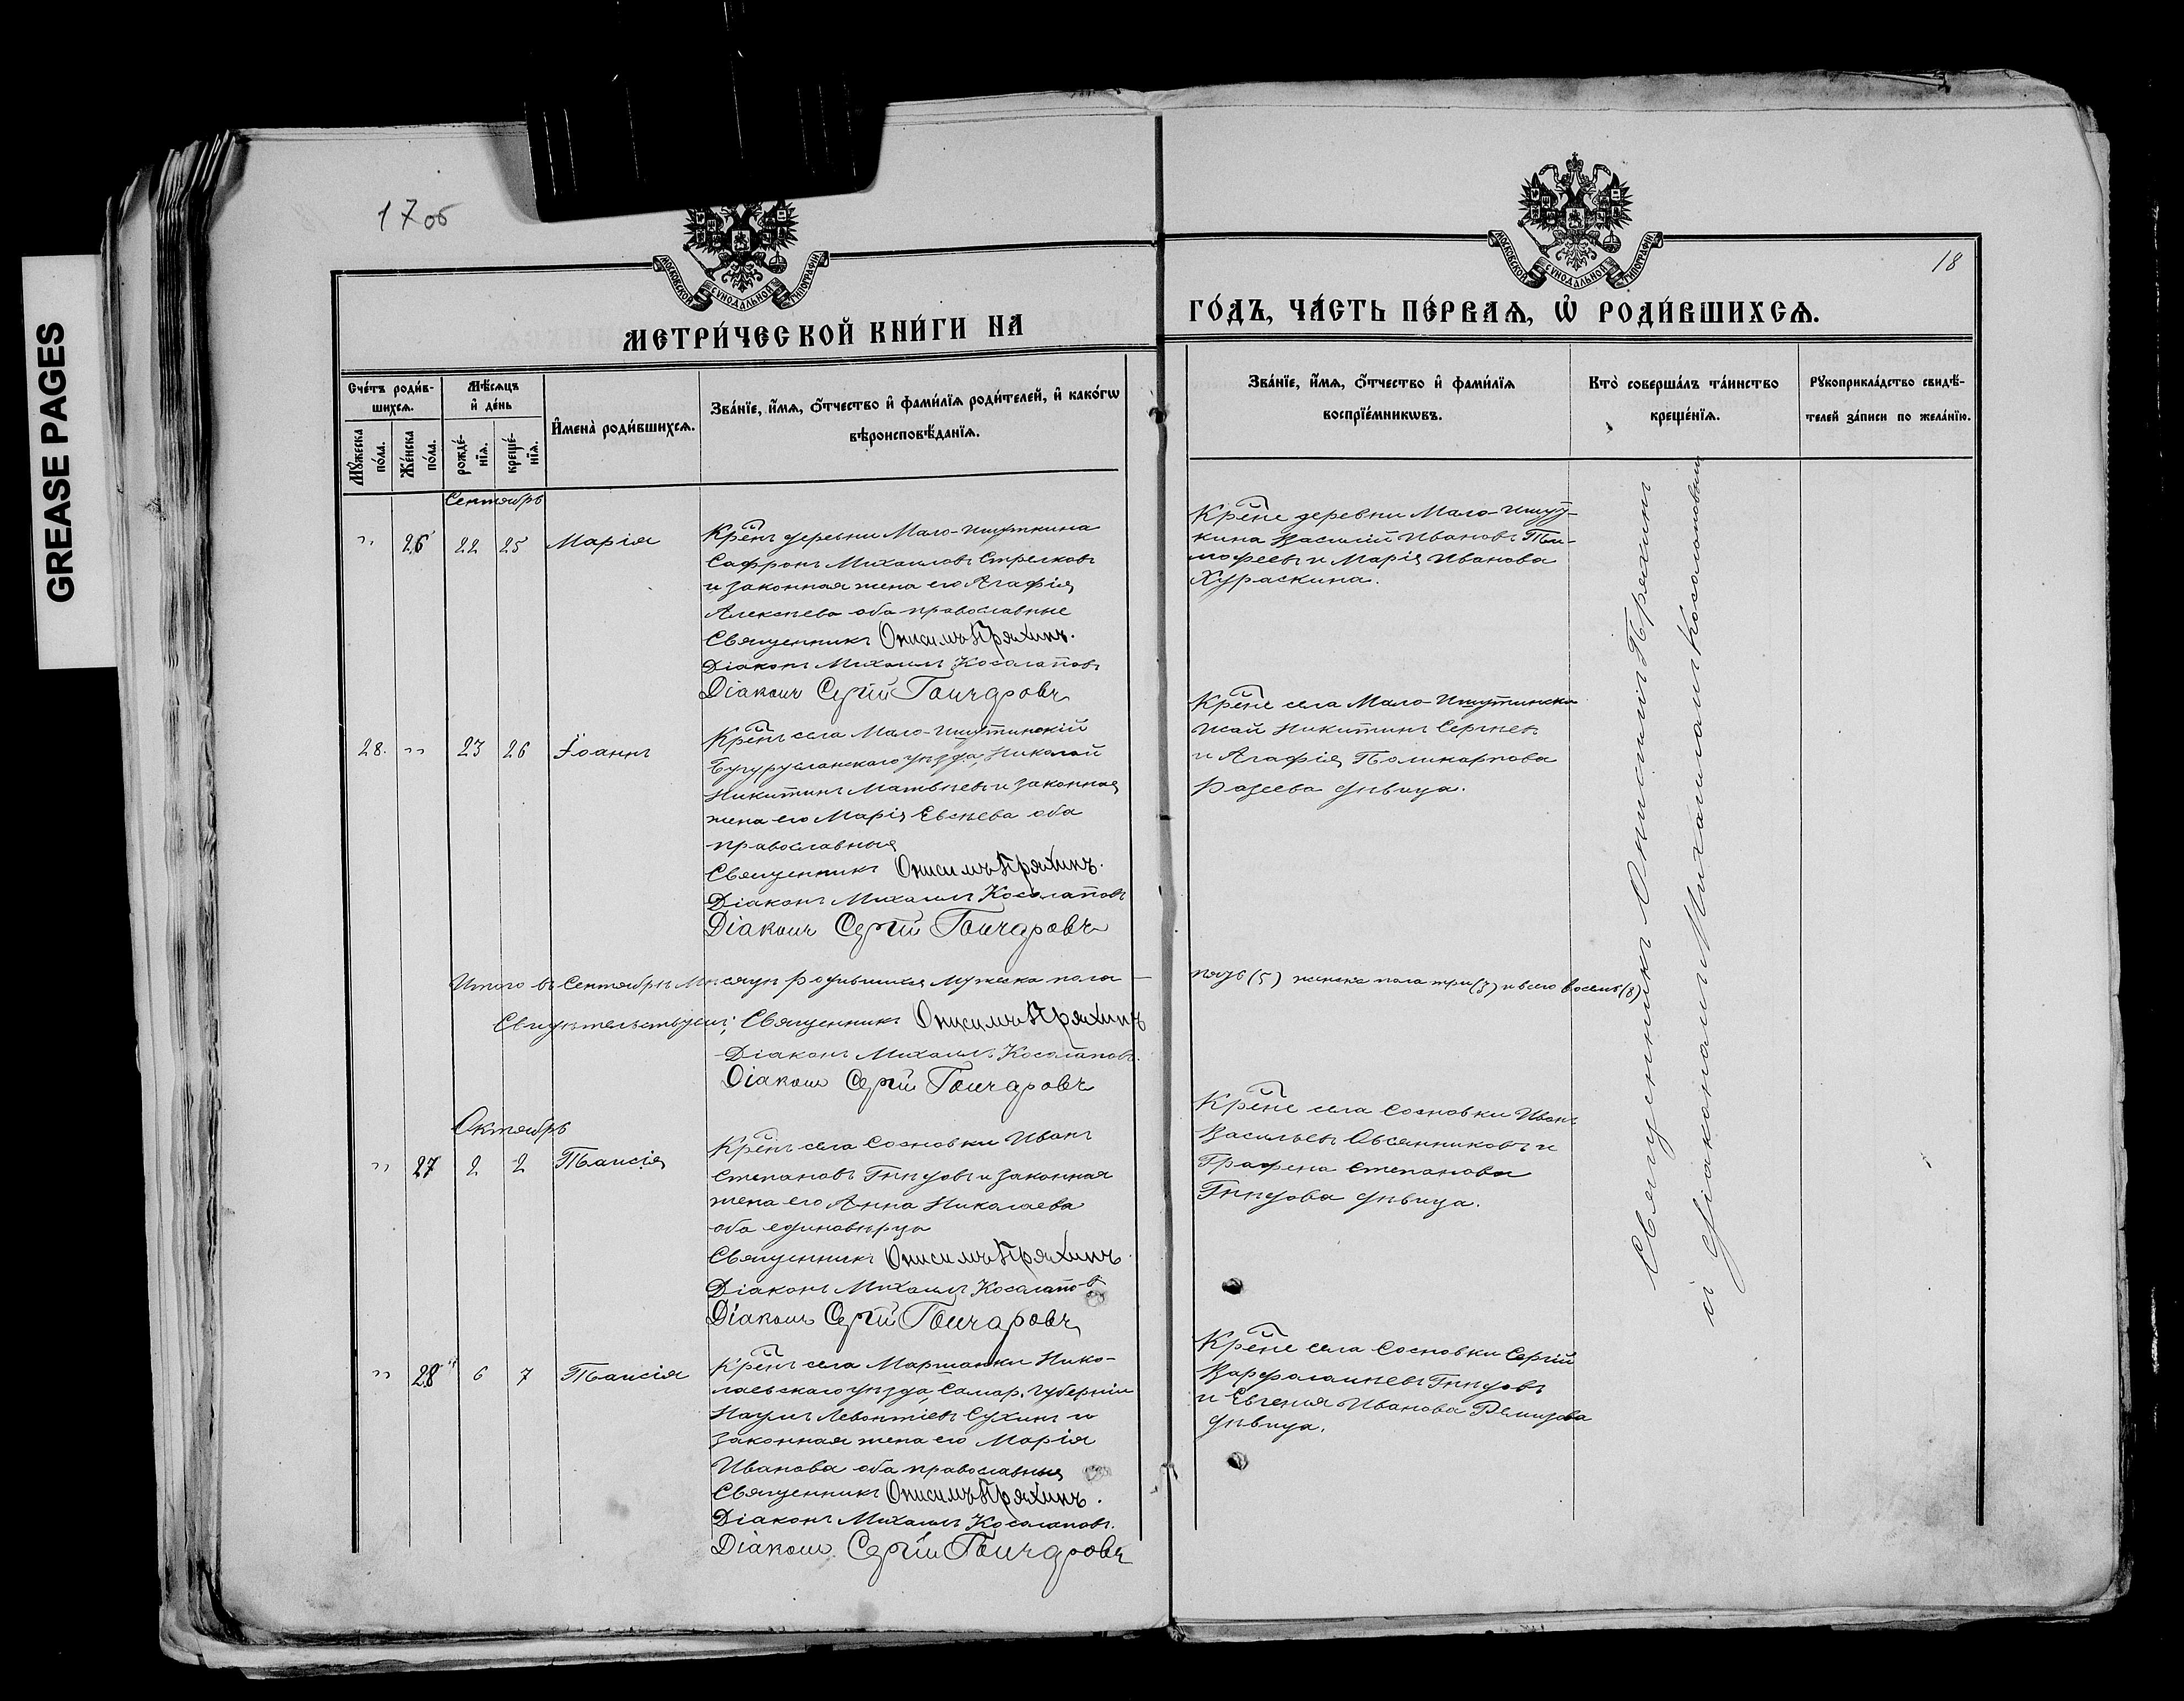 GREASE PAGES
17 об
18
МОСКОВСКОЙ СѴНОДАЛЬНОЙ ТИПОГРАФІИ
МОСКОВСКОЙ СѴНОДАЛЬНОЙ ТИПОГРАФІИ
МЕТРИ́ЧЕСКОЙ КНИ́ГИ НА
ГО́ДЪ, ЧА́СТЬ ПЕ́РВАѦ, Ѡ҆ РОДИ́ВШИХСѦ.
Сче́тъ роди́в-
шихсѧ.
Мѣ́сѧцъ
и҆ де́нь
Мꙋ́жеска
по́ла.
Же́нска
по́ла.
рожде́-
нїѧ.
креще́-
нїѧ.
И҆мена̀ роди́вшихсѧ.
Зва́нїе, и҆́мѧ, ѻ҆́тчество и҆ фами́лїѧ роди́телей, и҆ како́гѡ
вѣроисповѣ́данїѧ.
Зва́нїе, и҆́мѧ, ѻ҆́тчество и҆ фами́лїѧ
воспрїе́мникѡвъ.
Кто̀ соверша́лъ та́инство
креще́нїѧ.
Рꙋкоприкла́дство свидѣ́-
телей за́писи по жела́нїю.
Сентябрь
" 26 22 25 Марія
Крѣнъ деревни Мало-Ишуткина
Сафронъ Михаиловъ Стрелковъ
и законная жена его Агафія
Алексѣева оба православные
Священникъ Онисимъ Пряхинъ.
Діаконъ Михаилъ Косолаповъ
Діаконъ Сергій Гончаровъ
Крѣне деревни Мало-Ишут-
кина Василій Ивановъ Ти-
мофеевъ и Марія Иванова
Хураскина.
28. " 23 26 Іоаннъ
Крѣнъ села Мало-Ишутинскій
Бугурусланскаго уѣзда, Николай
Никитинъ Матвѣевъ и законная
жена его Марія Евсѣева оба
православныя
Священникъ Онисимъ Пряхинъ.
Діаконъ Михаилъ Косолаповъ
Діаконъ Сергій Гончаровъ
Крѣне села Мало-Ишутинска
Никитинъ Сергѣевъ
и Агафія Поликарпова
дѣвица.
Итого въ Сентябрѣ Мѣсяцѣ родившихся мужеска пола —
пять (5) женска пола три (3) и всего восемь (8)
Свидѣтельствуемъ; Священникъ Онисимъ Пряхинъ
Діаконъ Михаилъ Косолаповъ.
Діаконъ Сергій Гончаровъ
Октябрь
" 27 2 2 Таисія
Крѣнъ села Сосновки Иванъ
Степановъ Гнѣдовъ и законная
жена его Анна Николаева
оба единовѣрцы
Священникъ Онисимъ Пряхинъ
Діаконъ Михаилъ Косолаповъ
Діаконъ Сергій Гончаровъ
Крѣне села Сосновки Иванъ
Васильевъ Овсянниковъ и
Графена Степанова
Гнѣдова дѣвица.
" 28 6 7 Таисія
Крѣнъ села Марьианки Нико-
лаевскаго уѣзда, Самар. губерніи
Наумъ Левонтіевъ Сухинъ и
законная жена его Марія
Иванова оба православныя
Священникъ Онисимъ Пряхинъ.
Діаконъ Михаилъ Косолаповъ.
Діаконъ Сергій Гончаровъ
Крѣне села Сосновки Сергій
Варфаламѣевъ Гнѣдовъ
и Евгенія Иванова Ремизова
дѣвица.
Священникъ Онисимъ Пряхинъ
и Діакономъ Михаиломъ Косолаповымъ